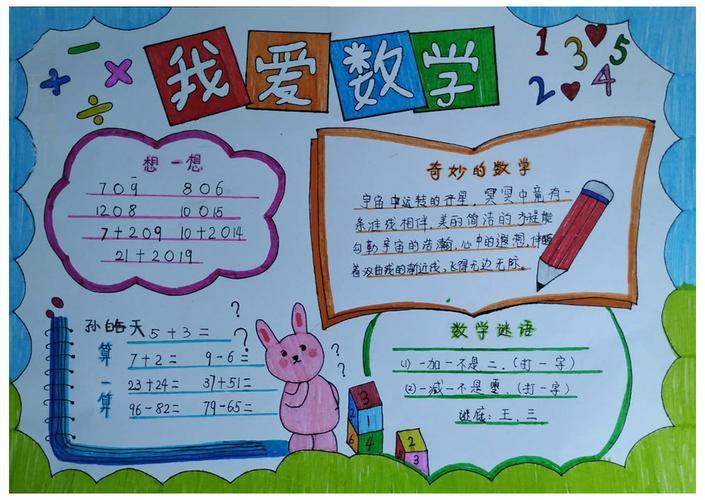 我爱数学
+ - × ÷
1 ♥ 3 5
2 ♥ 4
想一想
709 806
1208 10015
7+209 10+2014
21+2019
奇妙的数学
宇宙中运转的行星，冥冥中竟有一
条准线相伴，美的简洁的方程能
勾勒宇宙的浩瀚，心中的遐想，伴随
着双曲线的渐近线，飞得无边无际。
孙皓天
算一算
5+3=
7+2= 9-6=
23+24= 37+51=
96-82= 79-65=
? ? ? ?
3
1
6 4
2
1 3
数学谜语
(1) 一加一不是二．(打一字)
(2) 一减一不是零．(打一字)
谜底：王、三